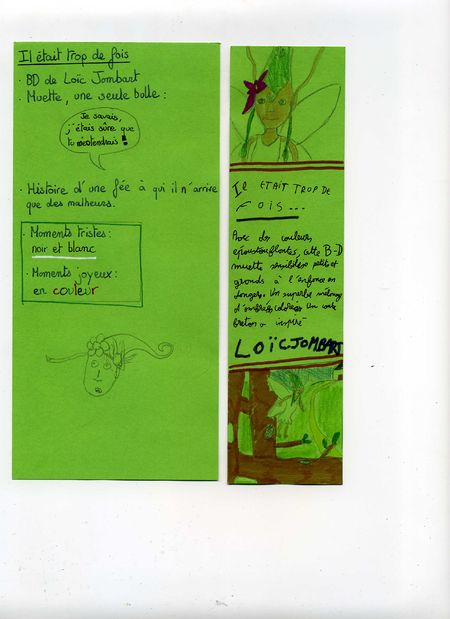 Il était trop de fois
· BD de Loïc Jombart
· Muette, une seule bulle :
Je savais,
j'étais sûre que
tu m'entendrais !
· Histoire d'une fée à qui il n'arrive
que des malheurs.
· Moments tristes :
noir et blanc
· Moments joyeux :
en couleur
IL ETAIT TROP DE
FOIS...
Avec des couleurs
époustouflantes, cette B-D
muette sensibilise petits et
grands à l'enfance en
danger. Un superbe mélange
d'ombrés coloriés. Un conte
breton inspiré
LOÏC JOMBART